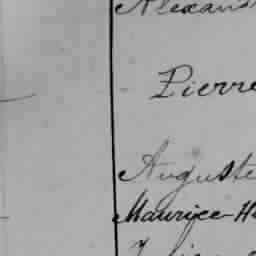 Alexand
Pierre
Auguste
Maurice-H